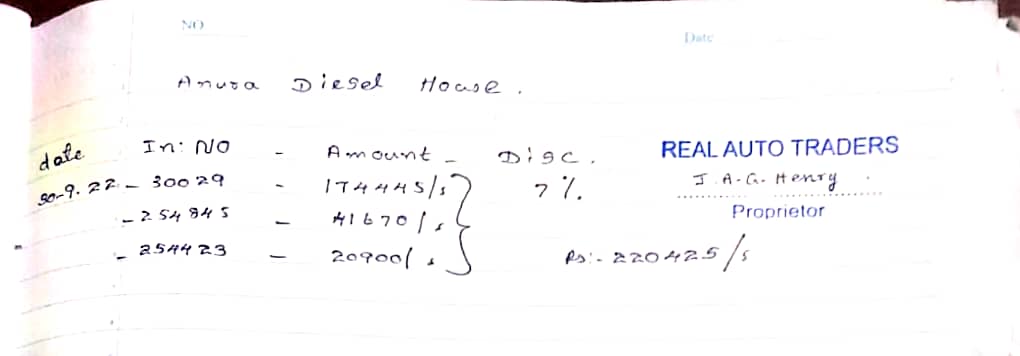 NO
Date
Anura Diesel House.
date In: NO - Amount - Disc.
30-9.22 - 30029 - 174445/s 7%.
- 254845 - 41670/s
- 254423 - 20900/s Rs:- 220425/s
REAL AUTO TRADERS
J.A.G. Henry
Proprietor